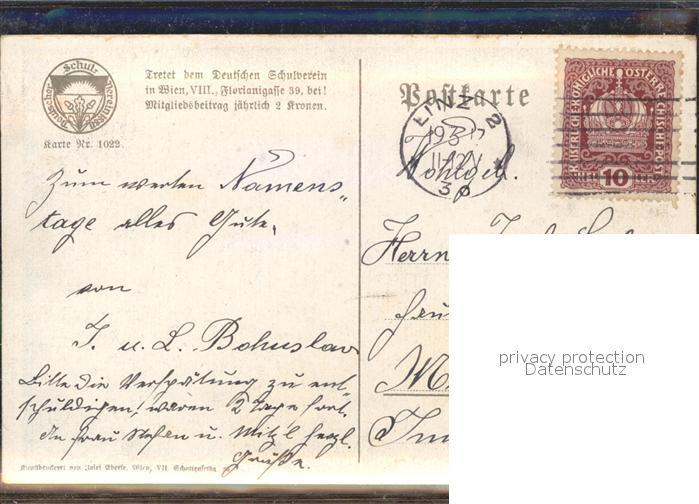 Deutscher Schulverein 1880
Karte Nr. 1022.
Tretet dem Deutschen Schulverein
in Wien, VIII., Florianigasse 39, bei!
Mitgliedsbeitrag jährlich 2 Kronen.
Postkarte
LINZ 2
KAISERLICHE KÖNIGLICHE ÖSTERREICHISCHE POST
10
Zum werten Namens„
tage alles Gute.
von
J. u. L. Bohuslav
Bitte die Verspätung zu ent„
schuldigen, waren 2 Tage fort.
An Frau Stefan u. Mitz'l herzl.
Grüße.
Wohlgeb.
Herrn
Kunstdruckerei von Josef Eberle, Wien, VII. Schottenfeldg.
privacy protection
Datenschutz